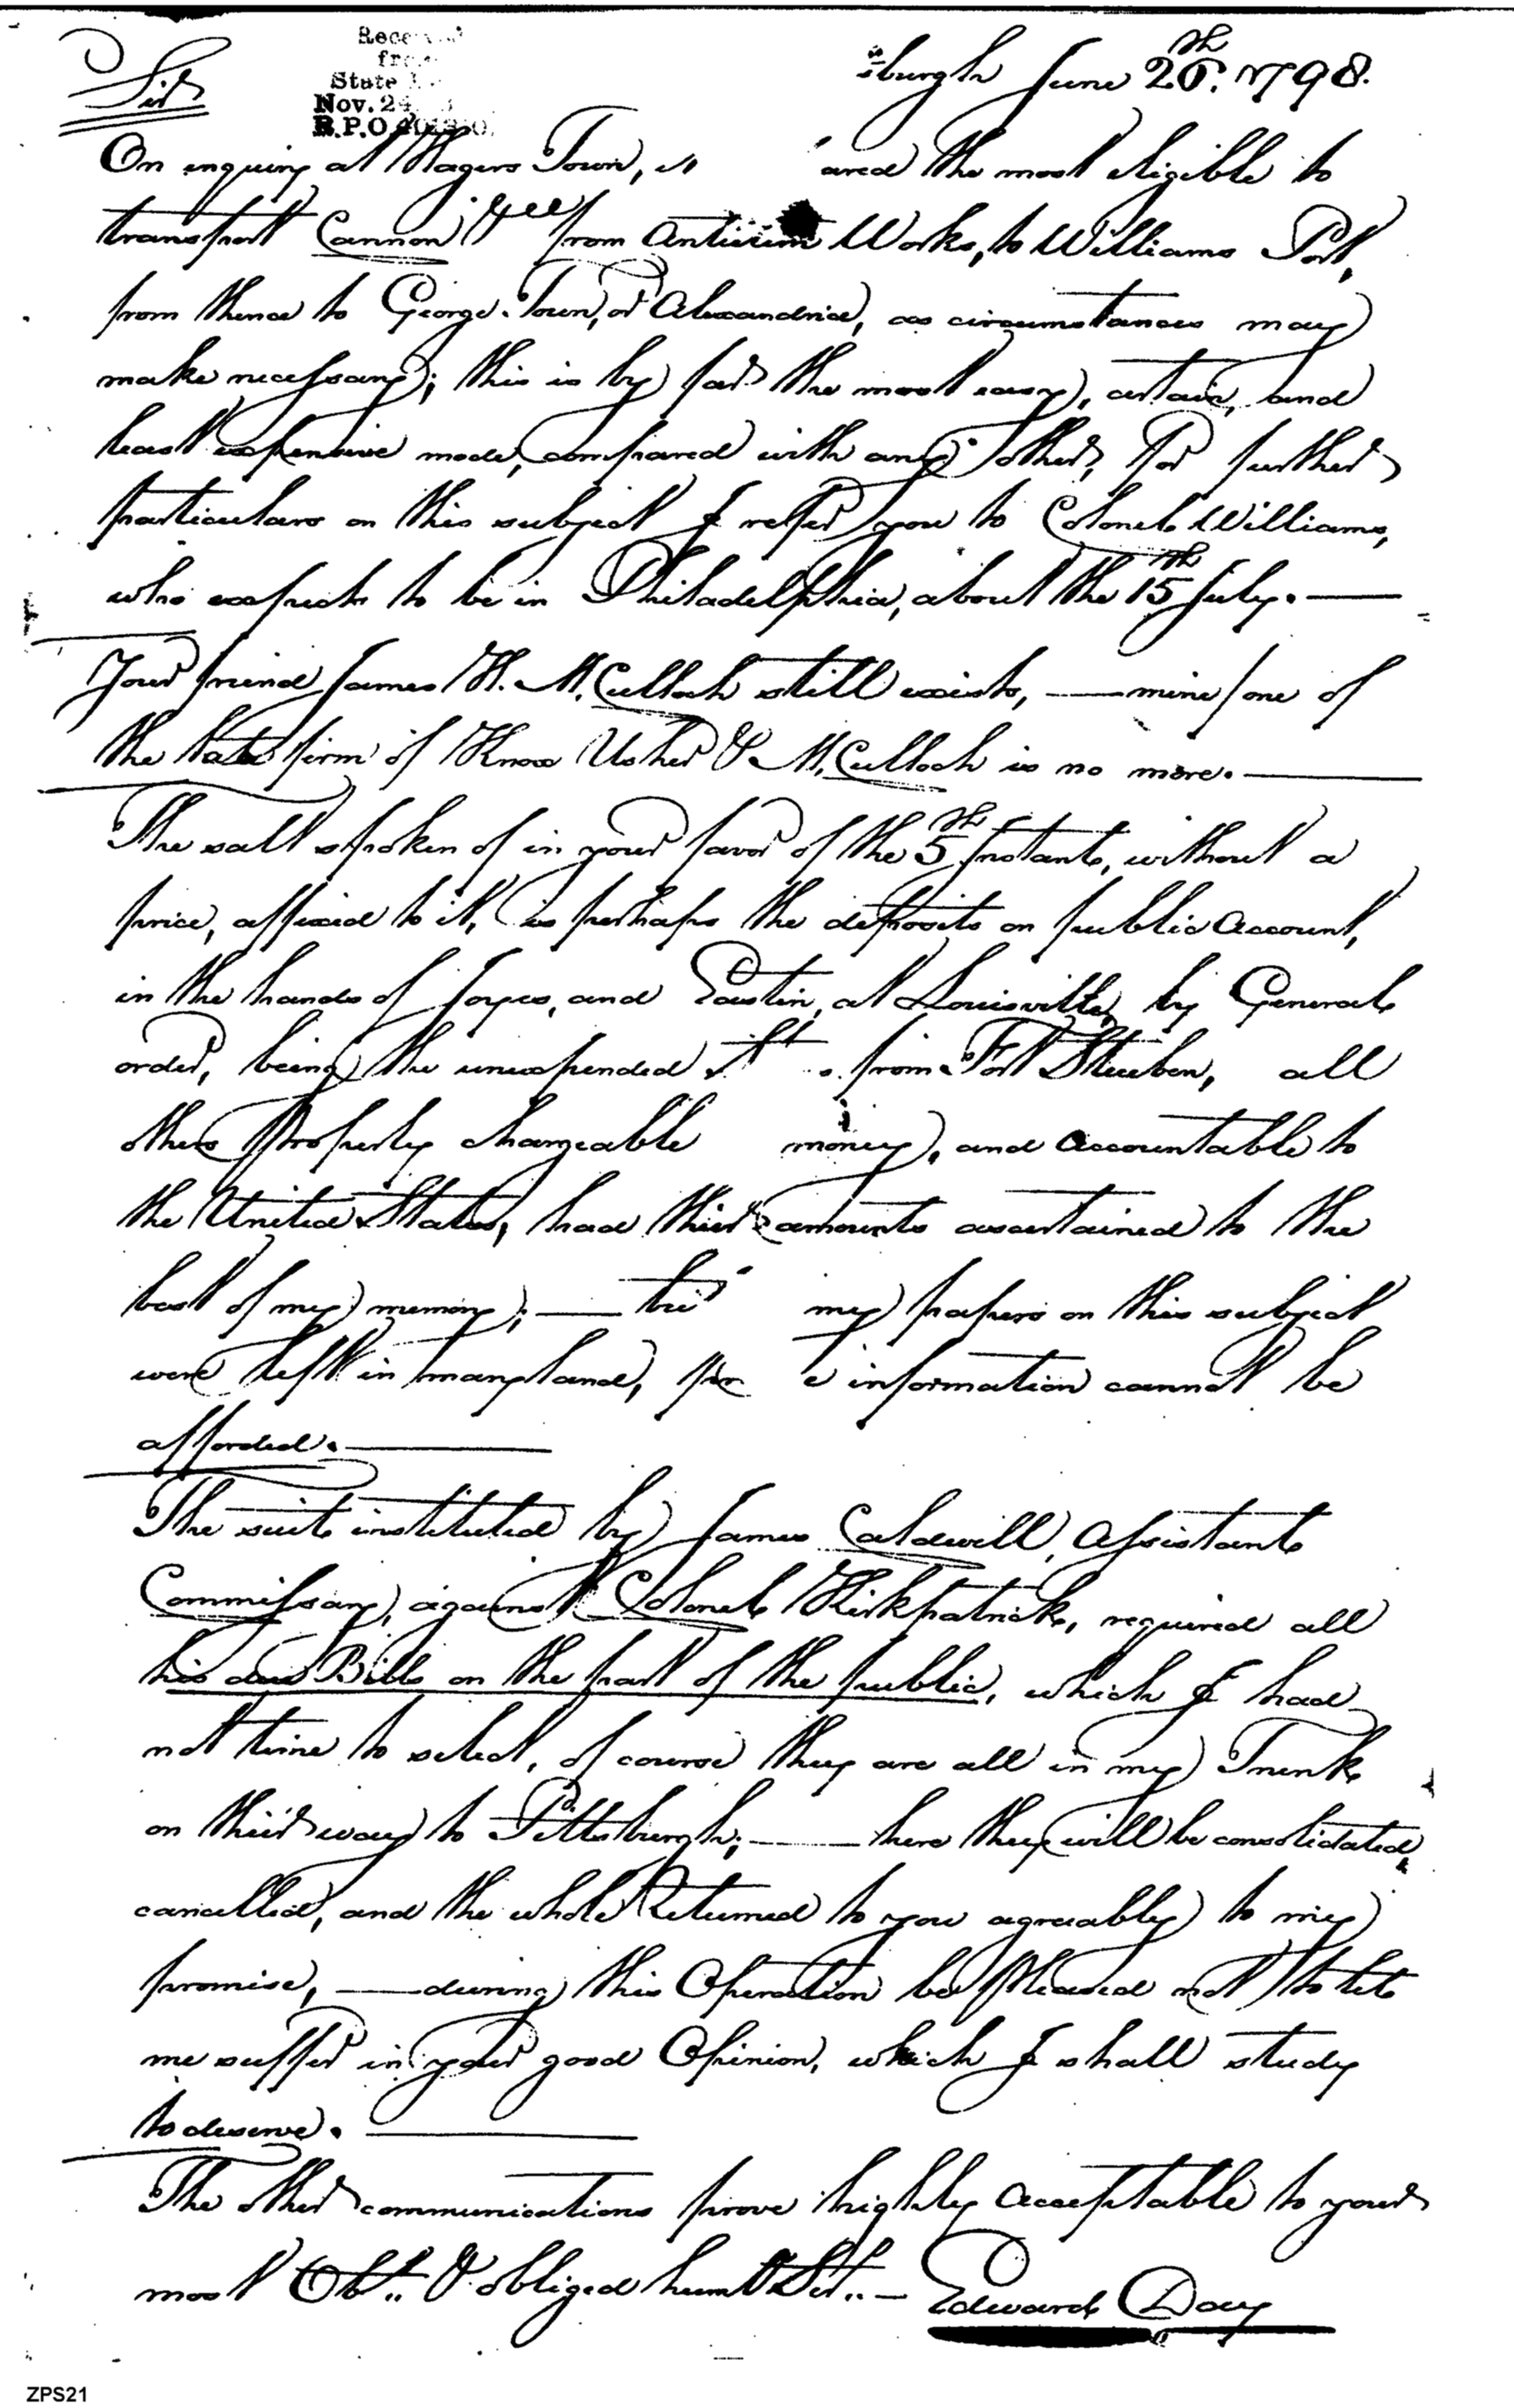 Sir
Received
from
State
Nov. 24
R.P.O.
sburgh June 26th 1798.
On enquiry at Hagers Town, it ared the most eligible to
transport Cannon &ca from Antietim Works, to Williams Port,
from thence to George-Town, or Alexandria, as circumstances may
make necessary; this is by far the most easy, certain, and
least expensive mode, compared with any other, For further
particulars on this subject I refer you to Colonel Williams,
who expects to be in Philadelphia, about the 15th July.—
Your friend James H. McCulloch still exists, — mine/one of
the late firm of Knox Usher & McCulloch is no more.—
The salt spoken of in your favor of the 5th Instant, without a
price, affixed to it, is perhaps the deposits on public account,
in the hands of Joyes, and Eastin, at Louisville, by General
order, being the unexpended from Fort Steuben, all
other Property chargeable money, and accountable to
the United States, had their amounts ascertained to the
best of my memory; — my papers on this subject
were left in Maryland, information cannot be
afforded.—
The suit instituted by James Caldwell, Assistant
Commissary, against Colonel Kirkpatrick, required all
his due Bills on the part of the public, which I had
not time to select, of course they are all in my Trunk
on their way to Pittsburgh; — here they will be consolidated,
cancelled, and the whole Returned to you agreeably to my
promise, — during this Operation be Pleased not to let
me suffer in your good Opinion, which I shall study
to deserve.—
The other communications prove highly acceptable to your
most Obt. & obliged humb Sert.. — Edward Day
ZPS21